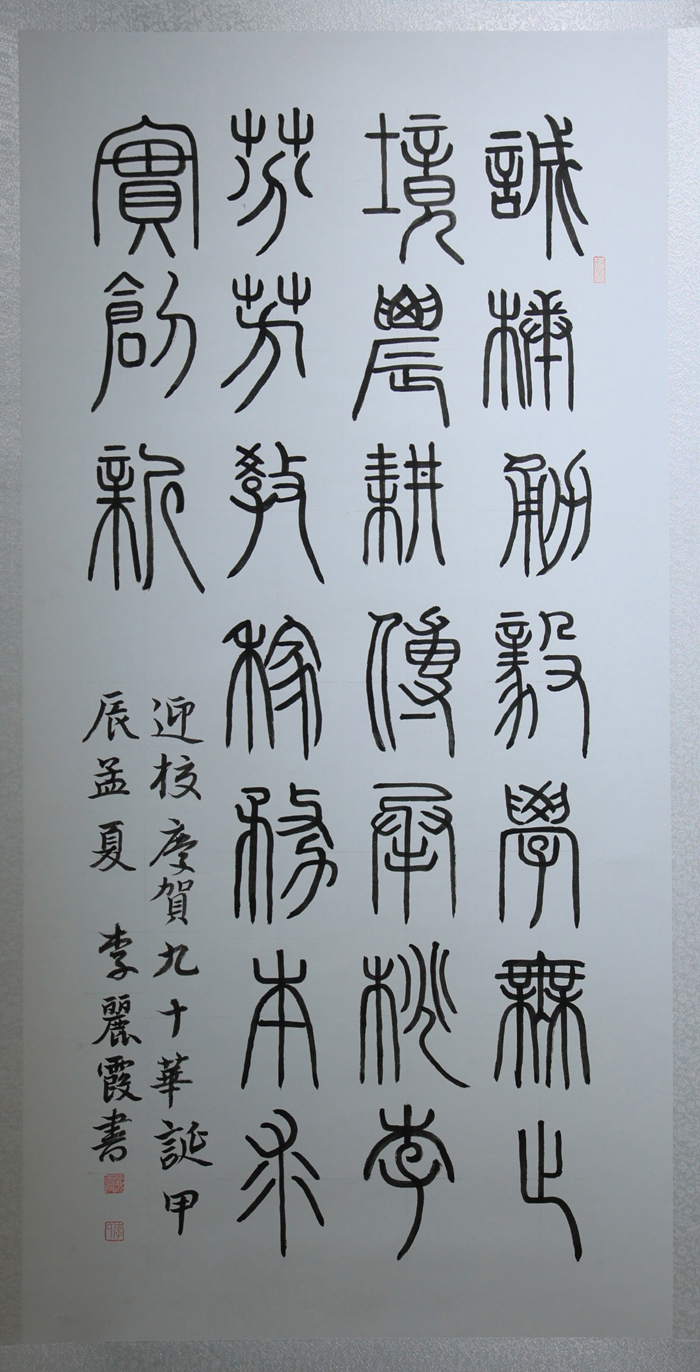 誠樸勇毅學無止
境農耕傳承桃李
芬芳教稼務本求
實創新
迎校慶賀九十華誕甲
辰孟夏 李麗霞書